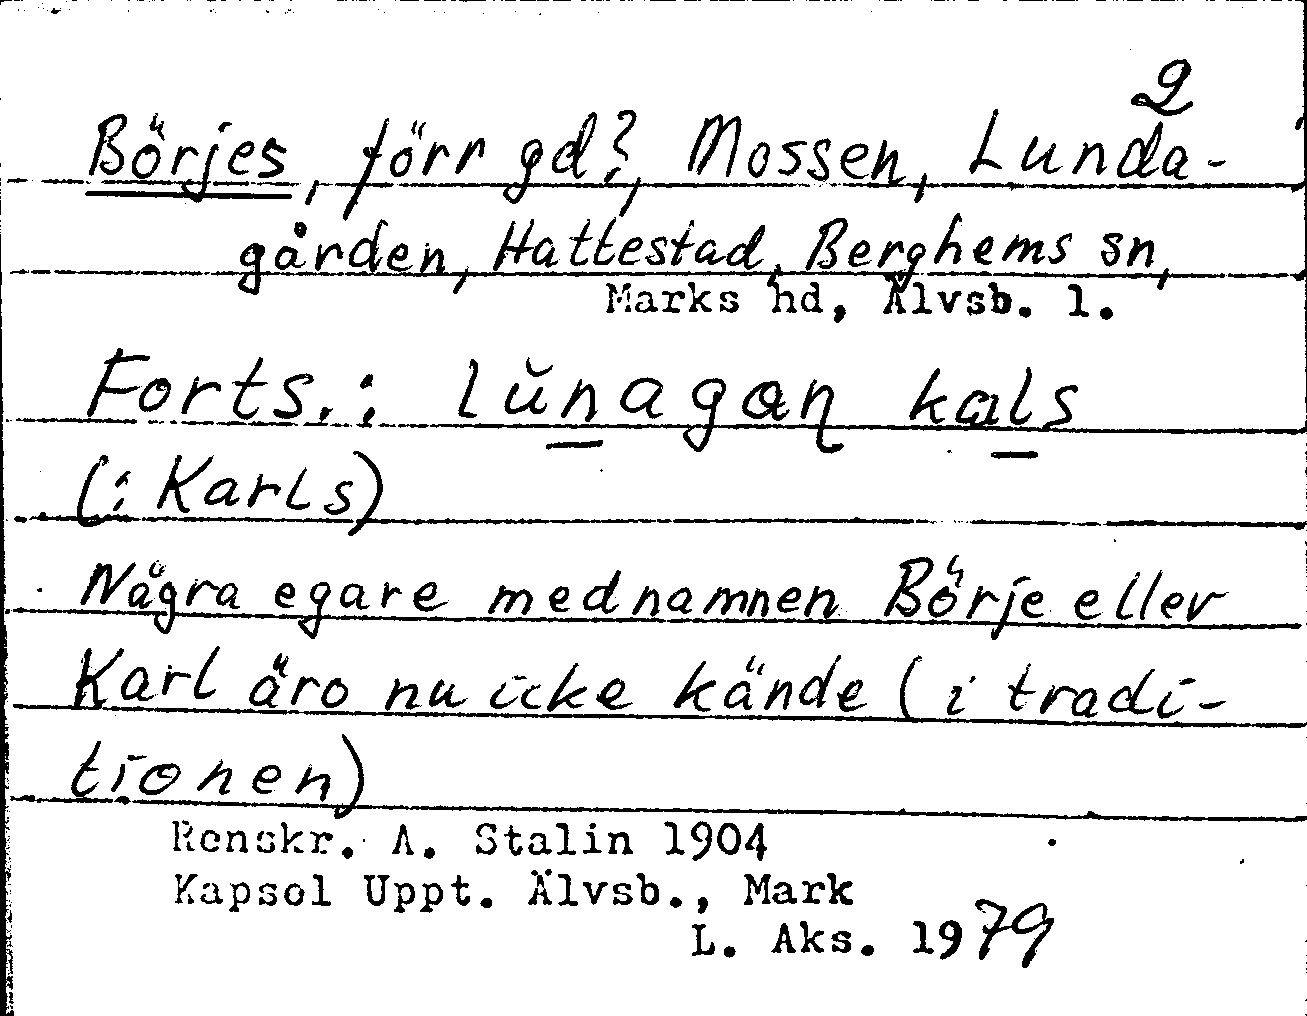 2
Börjes, förr gd?, Mossen, Lunda-
gården, Hattestad, Berghems sn,
Marks hd, Älvsb. l.
Forts.: lŭnagaɳ kals
(: Karls)
Några egare med namnen Börje eller
Karl äro nu icke kände (i tradi-
tionen)
Renskr. A. Stalin 1904
Kapsel Uppt. Älvsb., Mark
L. Aks. 1979